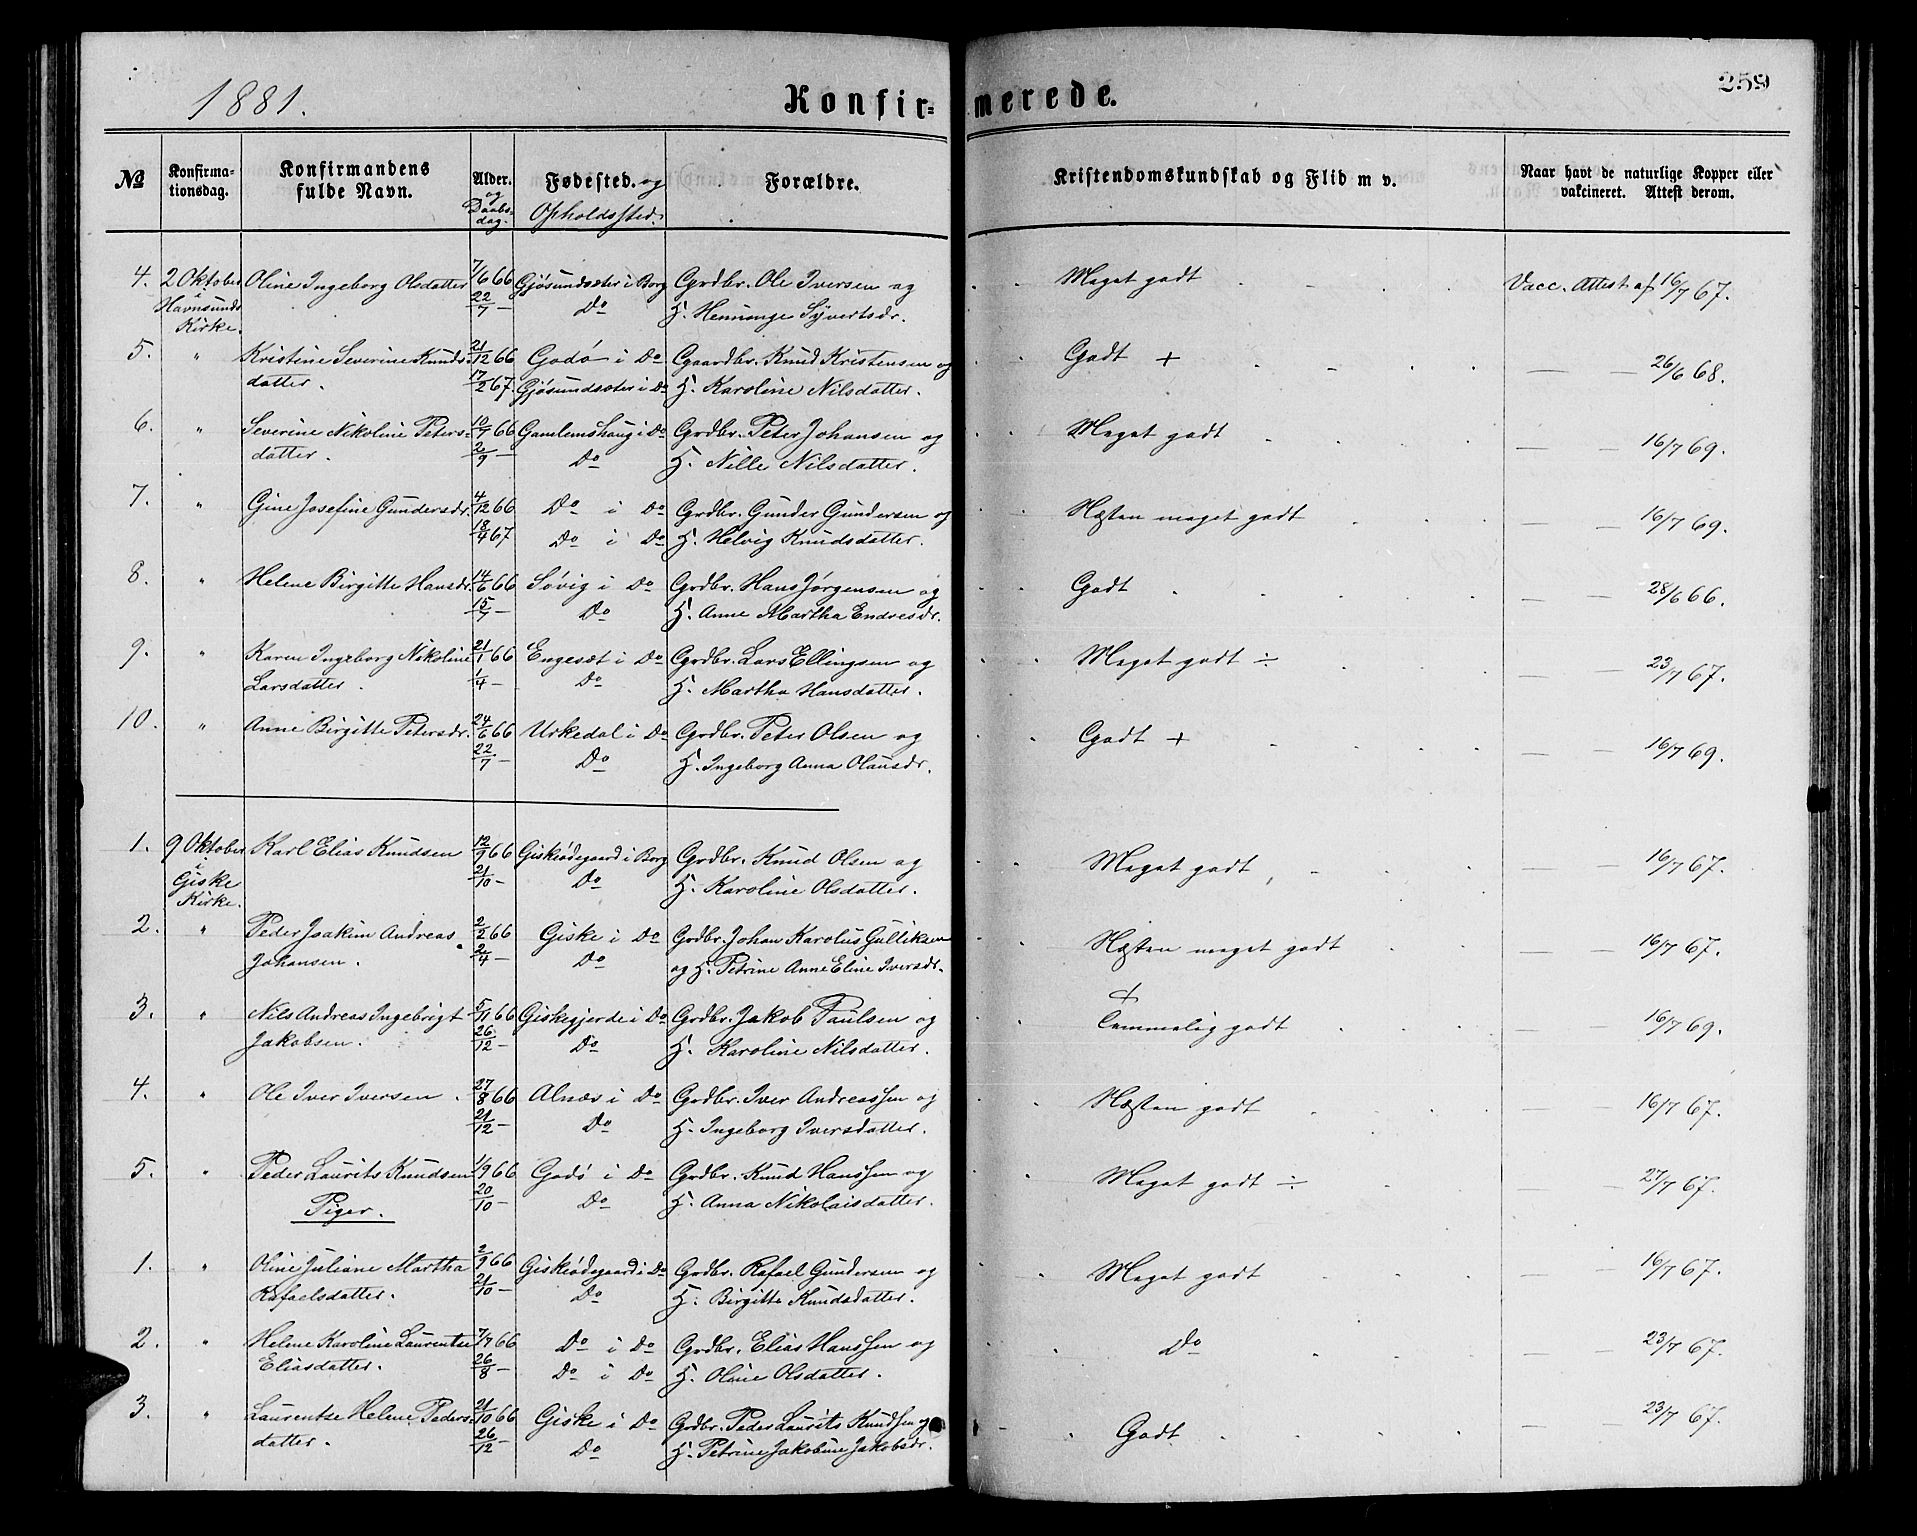 1881. Konfir= merede. 259
№ Konfirma-tionsdag. Konfirmandens fulde Navn. Alder. og Daabs-dag. Fødested. og Opholdssted. Forældre. Kristendomskundskab og Flid m v. Naar havt de naturlige Kopper eller vakcineret. Attest derom.
4. 2 Oktober Oline Ingeborg Olsdatter 7/6 66 Gjøsundsæter i Borg Grdbr. Ole Iversen og Meget godt Vacc. Attest af 16/7 67.
i Havnsunds Kirke. 22/7 — Do H. Henninge Syvertsdr.
5. " Kristine Severine Knuds- 21/12 66 Godø i Do Gaardbr. Knud Kristensen og Godt + — — 26/6 68.
datter. 17/2 67 Gjøsundsæter i Do H. Karoline Nilsdatter.
6. " Severine Nikoline Peters- 10/7 66 Gamlemshaug i Do Grdbr. Peter Johansen og Meget godt — — 16/7 69.
datter. 2/9 — Do H. Nille Nilsdatter.
7. " Gine Josefine Gundersdr. 4/12 66 Do i Do Grdbr. Gunder Gundersen og Næsten meget godt — — 16/7 69.
18/4 67 Do i Do H. Helvig Knudsdatter.
8. " Helene Birgitte Hansdr. 14/6 66 Søvig i Do Grdbr. Hans Jørgensen og Godt — — 28/6 66.
15/7 — Do H. Anne Martha Endresdr.
9. " Karen Ingeborg Nikoline 21/1 66 Engesæt i Do Grdbr. Lars Ellingsen og Meget godt ÷ — — 23/7 67.
Larsdatter. 1/4 — Do H. Martha Hansdatter.
10. " Anne Birgitte Petersdr. 24/6 66 Urkedal i Do Grdbr. Peter Olsen og Godt + — — 16/7 69.
22/7 — Do H. Ingeborg Anna Olausdr.
1. 9 Oktober Karl Elias Knudsen 12/9 66 Giskeødegaard i Borg Grdbr. Knud Olsen og Meget godt — — 16/7 67.
i Giske Kirke. 21/10 — Do H. Karoline Olsdatter.
2. " Peder Joakim Andreas 2/2 66 Giske i Do Grdbr. Johan Karolus Gulliksen Næsten meget godt — — 16/7 67.
Johansen. 2/4 — Do og H. Petrine Anne Eline Iversdr.
3. " Nils Andreas Ingebrigt 5/11 66 Giskegjerde i Do Grdbr. Jakob Paulsen og + Temmelig godt — — 16/7 69.
Jakobsen. 26/12 — Do H. Karoline Nilsdatter.
4. " Ole Iver Iversen. 27/8 66 Alnæs i Do Grdbr. Iver Andreassen og Næsten godt — — 16/7 67.
21/12 — Do H. Ingeborg Iversdatter.
5. " Peder Laurits Knudsen 1/9 66 Godø i Do Grdbr. Knud Hanssen og Meget godt ÷ — — 27/7 67.
Piger. 20/10 — Do H. Anna Nikolaisdatter.
1. " Oline Juliane Martha 2/9 66 Giskeødegaard i Do Grdbr. Rafael Gundersen og Meget godt — — 16/7 67.
Rafaelsdatter. 21/10 — Do H. Birgitte Knudsdatter.
2. " Helene Karoline Laurentse 7/7 66 Do i Do Grdbr. Elias Hanssen og Do — — 23/7 67.
Eliasdatter. 26/8 Do i Do H. Oline Olsdatter.
3. " Laurentse Helene Peders- 21/10 66 Giske i Do Grdbr. Peder Laurits Knudsen og Godt — — 23/7 67.
datter. 26/12 — Do H. Petrine Jakobine Jakobsdr.